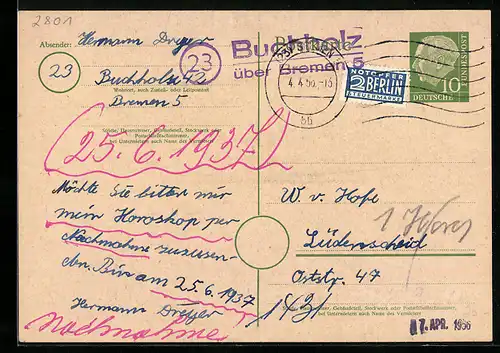 2801
Absender: Hermann Dreyer
23
Buchholz 42
Wohnort, auch Zustell- oder Leitpostamt
Bremen 5
Straße, Hausnummer, Gebäudeteil, Stockwerk oder Postschließfachnummer,
bei Untermietern auch Name des Vermieters
(25.6.1937)
Möchte Sie bitten mir
mein Horoskop per
Nachnahme zuzusen-
den. Bin am 25.6.1937
Hermann Dreyer
Nachnahme
Postkarte
23
Buchholz
über Bremen 5
4.4.56.-13
bb
NOTOPFER
2 BERLIN
STEUERMARKE
10
DEUTSCHE
BUNDESPOST
W. v. Hofe
1 Horos
Lüdenscheid
Oststr. 47
Straße, Hausnummer, Gebäudeteil, Stockwerk oder Postschließfachnummer,
bei Untermietern auch Name des Vermieters
17. APR. 1956